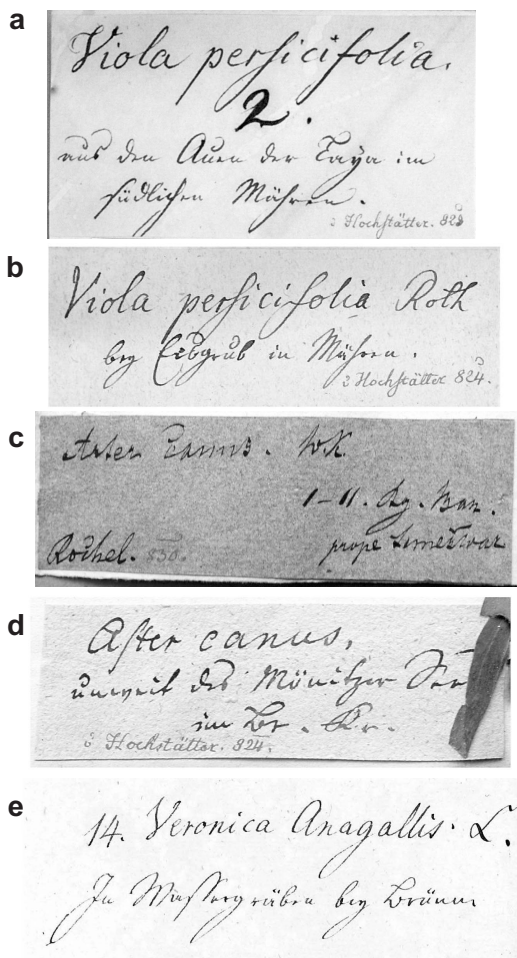 a
Viola persicifolia.
2.
aus den Auen der Taya im
südlichen Mähren.
Hochstätter. 823
b
Viola persicifolia Roth
bey Eisgrub in Mähren.
Hochstätter 824.
c
Aster canus. W.K.
I–II. Rg. Ban.
Rochel. 830. prope Temeswar
d
Aster canus,
unweit des Mönitzer See
im Br. Kr.
Hochstätter. 824.
e
14. Veronica Anagallis. L.
In Wassergräben bey Brünn